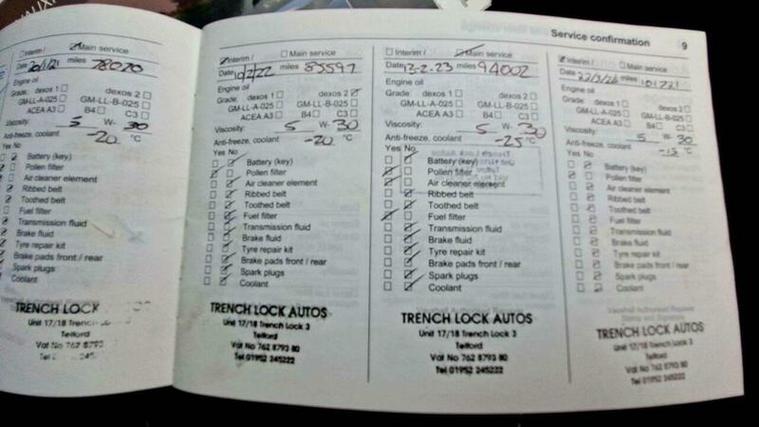 Service confirmation 9
Interim / Main service
Date 20/1/21 miles 78020
Engine oil
Grade: dexos 1 dexos 2
GM-LL-A-025 GM-LL-B-025
ACEA A3 B4 C3
Viscosity: 5 W- 30
Anti-freeze, coolant -20 °C
Yes No
Battery (key)
Pollen filter
Air cleaner element
Ribbed belt
Toothed belt
Fuel filter
Transmission fluid
Brake fluid
Tyre repair kit
Brake pads front / rear
Spark plugs
Coolant
TRENCH LOCK
Unit 17/18 Trench
Telford
Vat No 762 8793
Interim / Main service
Date 10/2/22 miles 85597
Engine oil
Grade: dexos 1 dexos 2
GM-LL-A-025 GM-LL-B-025
ACEA A3 B4 C3
Viscosity: 5 W- 30
Anti-freeze, coolant -20 °C
Yes No
Battery (key)
Pollen filter
Air cleaner element
Ribbed belt
Toothed belt
Fuel filter
Transmission fluid
Brake fluid
Tyre repair kit
Brake pads front / rear
Spark plugs
Coolant
TRENCH LOCK AUTOS
Unit 17/18 Trench Lock 3
Telford
Vat No 762 8793 80
Tel 01952 245222
Interim / Main service
Date 13-2-23 miles 94002
Engine oil
Grade: dexos 1 dexos 2
GM-LL-A-025 GM-LL-B-025
ACEA A3 B4 C3
Viscosity: 5 W- 30
Anti-freeze, coolant -25 °C
Yes No
Battery (key)
Pollen filter
Air cleaner element
Ribbed belt
Toothed belt
Fuel filter
Transmission fluid
Brake fluid
Tyre repair kit
Brake pads front / rear
Spark plugs
Coolant
TRENCH LOCK AUTOS
Unit 17/18 Trench Lock 3
Telford
Vat No 762 8793 80
Tel 01952 245222
Interim / Main service
Date 22/3/24 miles 101721
Engine oil
Grade: dexos 1 dexos 2
GM-LL-A-025 GM-LL-B-025
ACEA A3 B4 C3
Viscosity: 5 W- 30
Anti-freeze, coolant -15 °C
Yes No
Battery (key)
Pollen filter
Air cleaner element
Ribbed belt
Toothed belt
Fuel filter
Transmission fluid
Brake fluid
Tyre repair kit
Brake pads front / rear
Spark plugs
Coolant
TRENCH LOCK AUTOS
Unit 17/18 Trench Lock 3
Telford
Vat No 762 8793 80
Tel 01952 245222